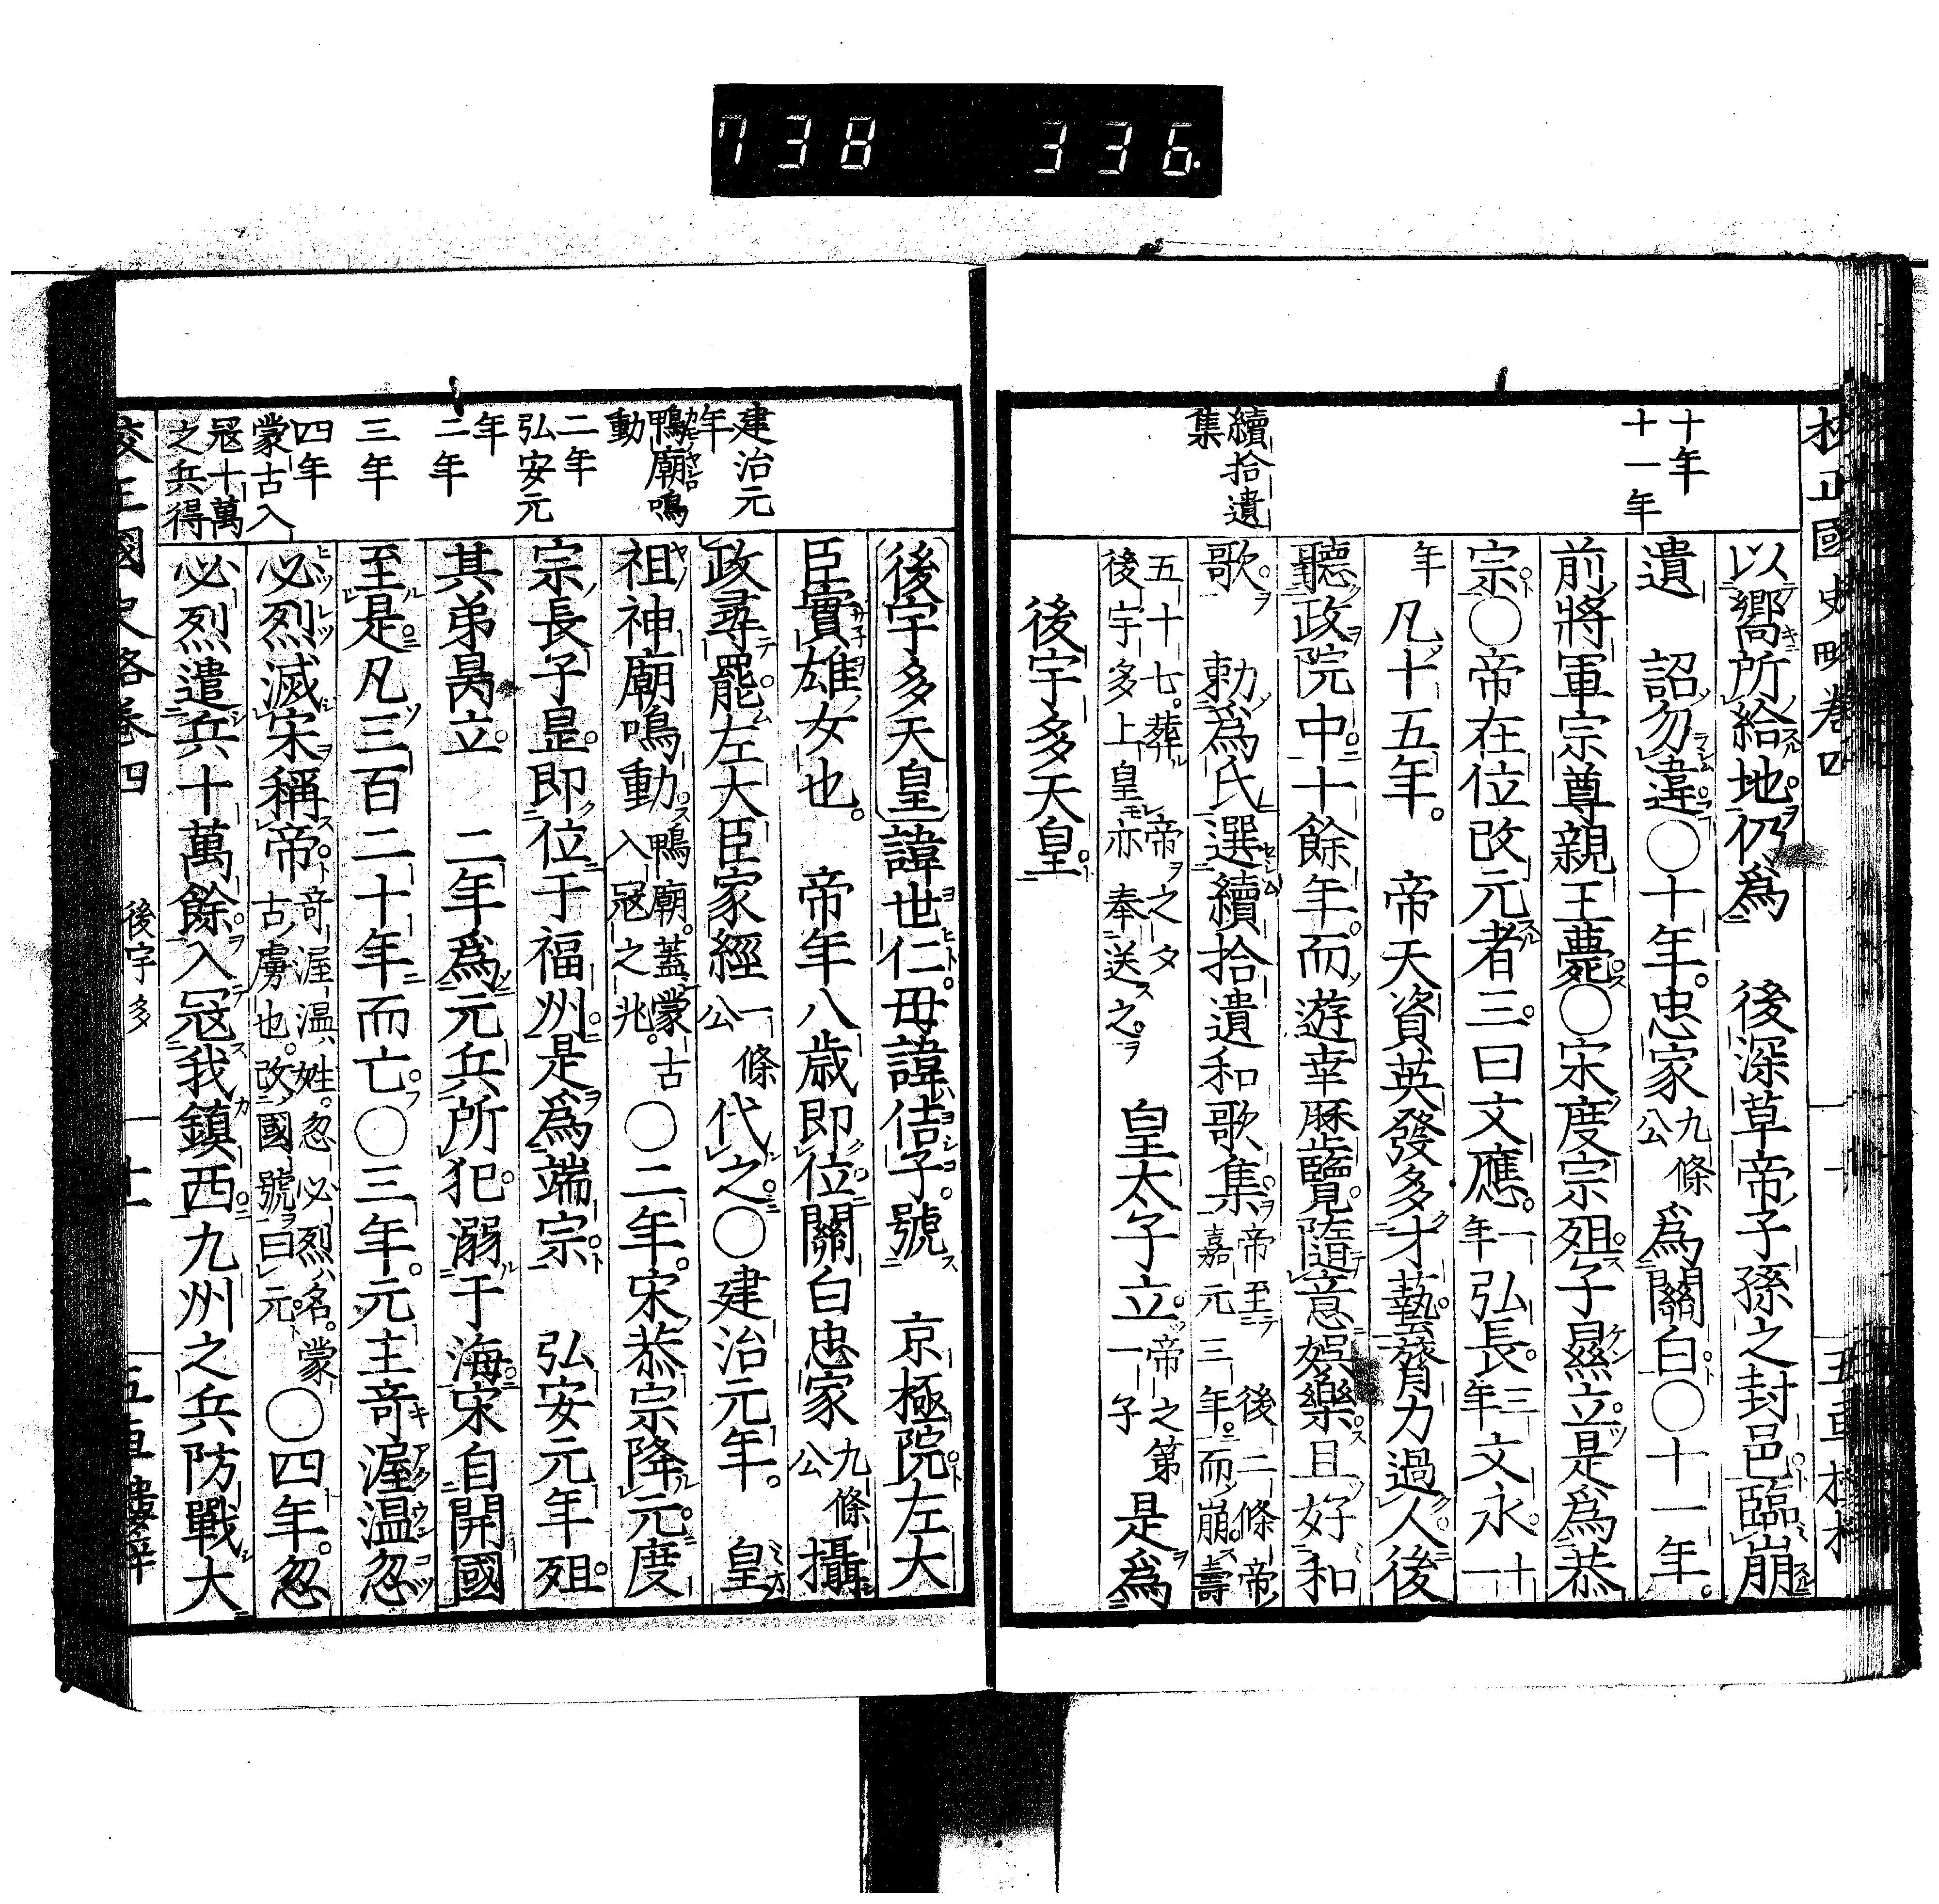 738 336
校正國史略卷四
十年
十一年
續拾遺
集
以嚮所給地仍爲 後深草帝子孫之封邑臨崩
遺 詔勿違〇十年忠家九條公爲關白〇十一年
前將軍宗尊親王薨〇宋度宗殂子㬎立是爲恭
宗〇帝在位改元者三曰文應一年弘長三年文永十一
年凡十五年 帝天資英發多才藝膂力過人後
聽政院中十餘年而遊幸歷覽隨意娯樂且好和
歌 勅爲氏選續拾遺和歌集帝至 後二條帝嘉元三年而崩壽
五十七葬 帝之夕後宇多上皇亦奉送之 皇太子立帝之第一子是爲
後宇多天皇
建治元
年
鴨廟鳴
動
二年
弘安元
年
二年
三年
四年
蒙古入
寇十萬
之兵得
後宇多天皇諱世仁母諱佶子號 京極院左大
臣實雄女也 帝年八歲即位關白忠家九條公攝
政尋罷左大臣家經一條公代之〇建治元年 皇
祖神廟鳴動鴨廟蓋蒙古入寇之兆〇二年宋恭宗降元度
宗長子昰即位于福州是爲端宗 弘安元年殂
其弟昺立 二年爲元兵所犯溺于海宋自開國
至是凡三百二十年而亡〇三年元主竒渥温忽
必烈滅宋稱帝竒渥温姓忽必烈名蒙古虜也改國號曰元〇四年忽
必烈遣兵十萬餘入寇我鎮西九州之兵防戰大
校正國史略卷四 後宇多 十一 五車樓梓